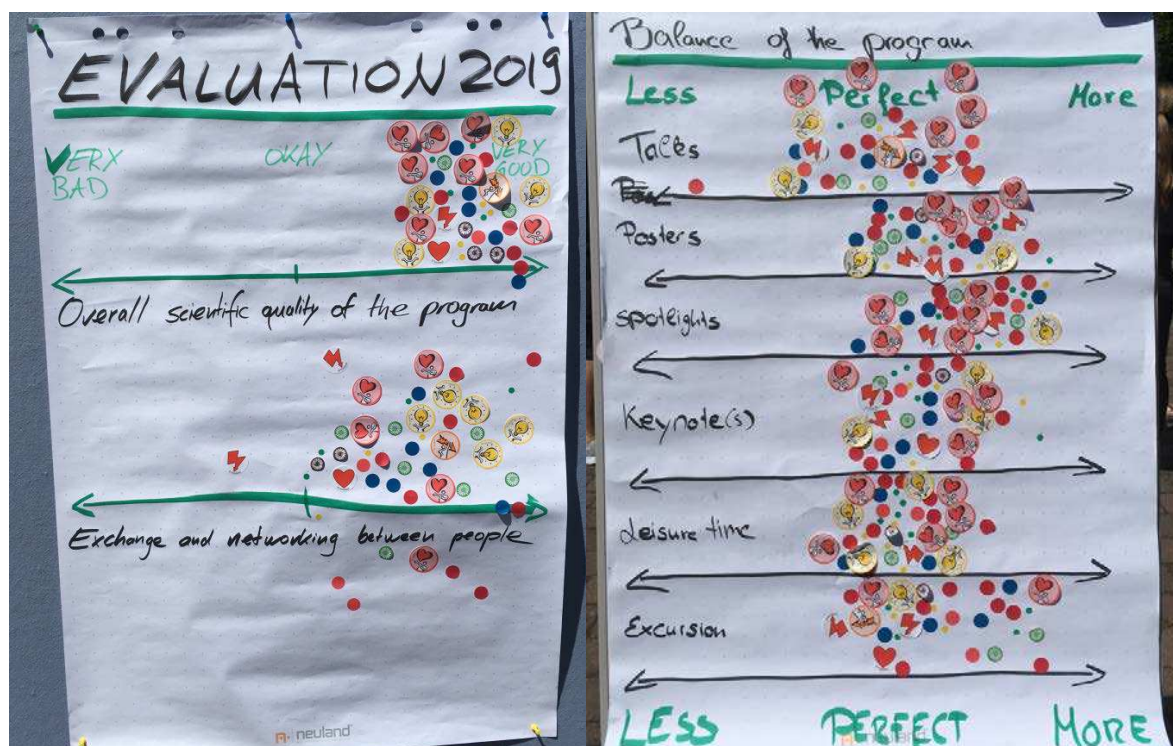 EVALUATION 2019
VERY BAD
OKAY
VERY GOOD
Overall scientific quality of the program
Exchange and networking between people
neuland
Balance of the program
Less Perfect More
Talks
Posters
spotlights
Keynote(s)
Leisure time
Excursion
LESS PERFECT MORE
neuland